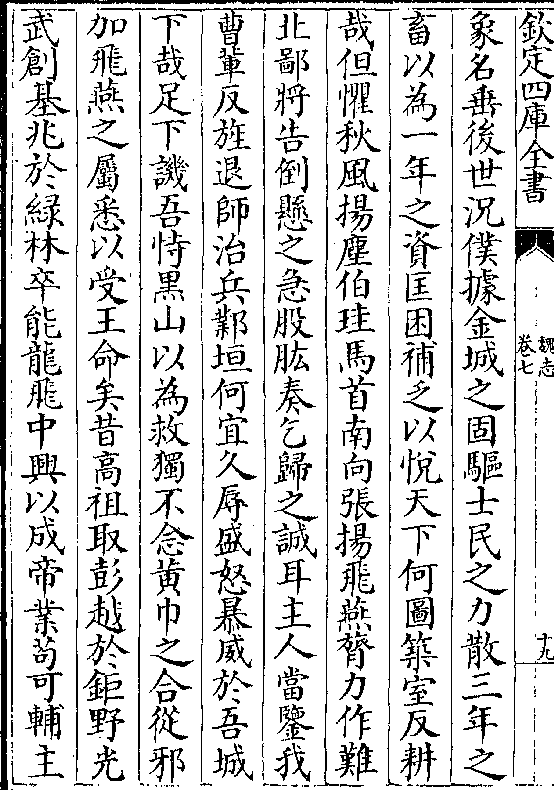 欽定四庫全書
魏志
卷七
十九
象名垂後世況僕據金城之固驅士民之力散三年之
畜以為一年之資匡困補乏以悅天下何圖築室反耕
哉但懼秋風揚塵伯珪馬首南向張揚飛燕膂力作難
北鄙將告倒懸之急股肱奏乞歸之誠耳主人當鑒我
曹輩反旌退師治兵鄴垣何宜久辱盛怒暴威於吾城
下哉足下譏吾恃黒山以為救獨不念黄巾之合從邪
加飛燕之屬悉以受王命矣昔高祖取彭越於鉅野光
武創基兆於緑林卒能龍飛中興以成帝業苟可輔主